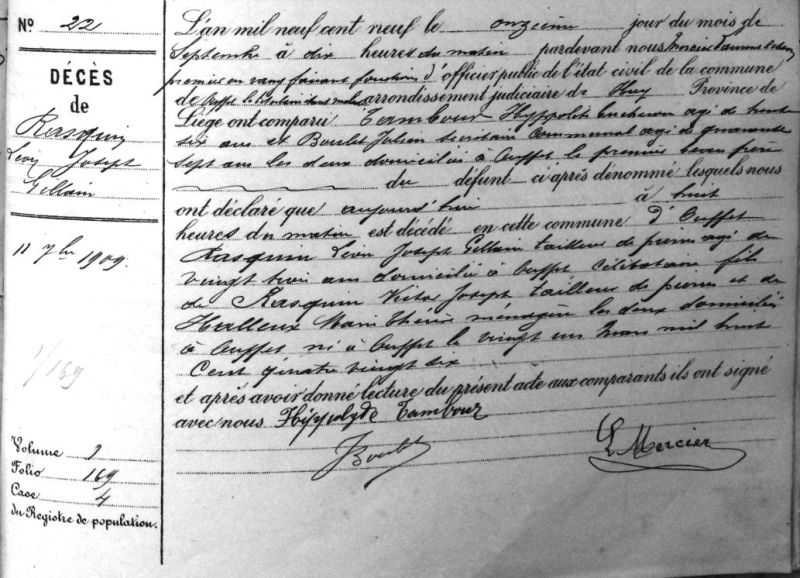 N° 22
DÉCÈS
de
Rasquin
Léon Joseph
Gillain
11 7bre 1909.
1/169
Volume 9
Folio 169
Case 4
du Registre de population.
L'an mil neuf cent neuf le onzième jour du mois de
Septembre à dix heures du matin pardevant nous Mercier
premier en rang faisant fonctions d'officier public de l'état civil de la commune
de Ouffet arrondissement judiciaire de Huy Province de
Liège ont comparu Tambour Hyppolite agé de trente
six ans et Boulet Julien Secrétaire Communal agé de quarante
sept ans les deux domiciliés à Ouffet le premier beau frère
du défunt ci après dénommé lesquels nous
ont déclaré que aujourd'hui à huit
heures du matin est décédé en cette commune d'Ouffet
Rasquin Léon Joseph Gillain tailleur de pierres agé de
vingt trois ans domicilié à Ouffet, Célibataire fils
de Rasquin Victor Joseph tailleur de pierres et de
Halleux Marie Thérèse ménagère les deux domiciliés
à Ouffet né à Ouffet le vingt un Mars mil huit
Cent quatre vingt six
et après avoir donné lecture du présent acte aux comparants ils ont signé
avec nous Hippolyde Tambour
JBoulet
L Mercier